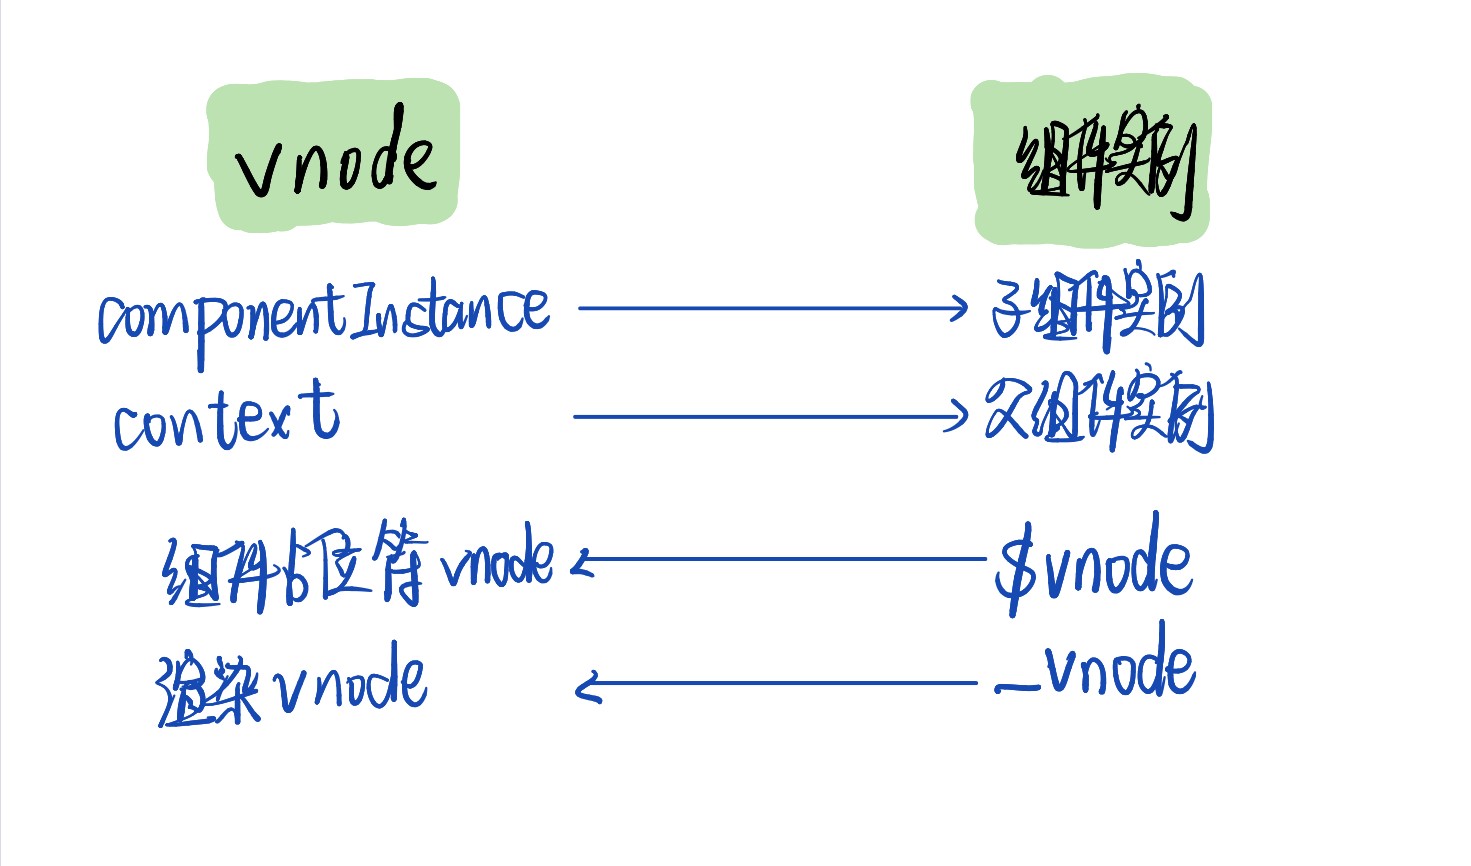 vnode 组件实例
componentInstance 子组件实例
context 父组件实例
组件占位符vnode $vnode
渲染vnode _vnode